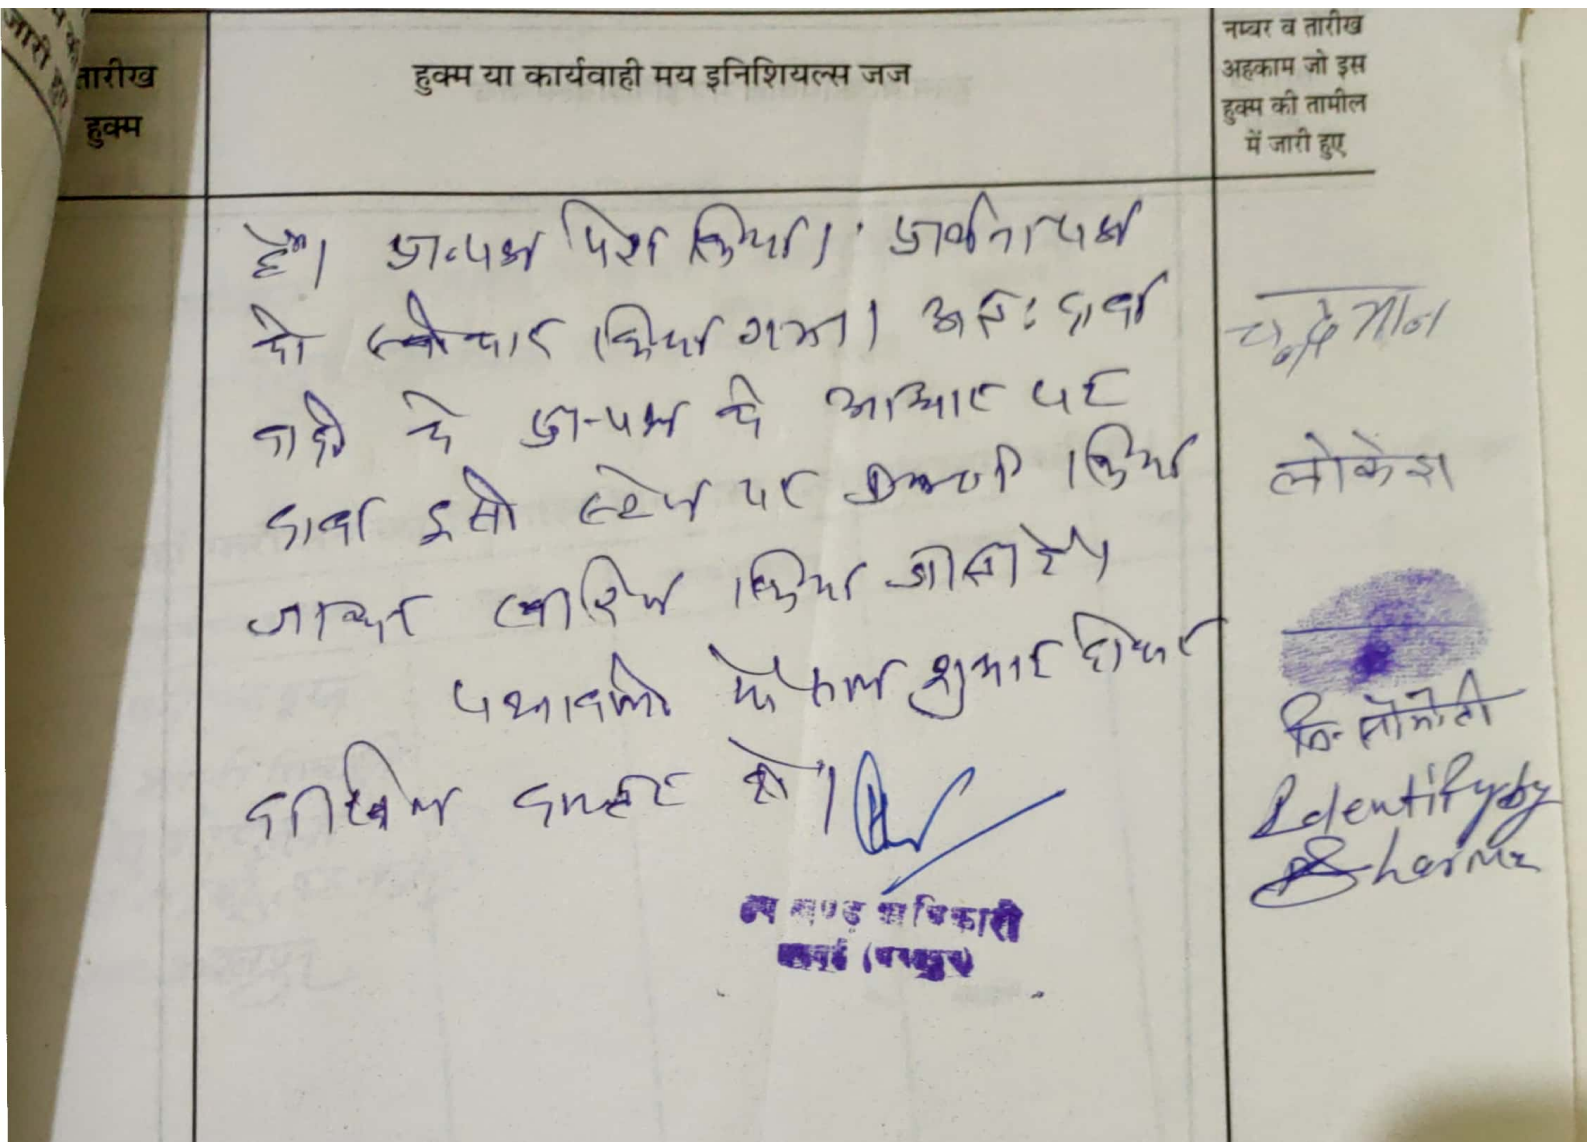 जारी हुए
तारीख
हुक्म
हुक्म या कार्यवाही मय इनिशियल्स जज
नम्बर व तारीख
अहकाम जो इस
हुक्म की तामील
में जारी हुए
है। प्रा-पत्र पेश किया। प्रार्थना पत्र
को स्वीकार किया गया। अतः दावा
वादी के प्रा-पत्र के आधार पर
दावा इसी स्टेज पर किया
जाकर खारिज किया जाता है।
पत्रावली फैसल शुमार होकर
दाखिल दफ्तर हो।
उप खण्ड अधिकारी
चन्द्रभान
लोकेश
नि-
Identify by
Sharma